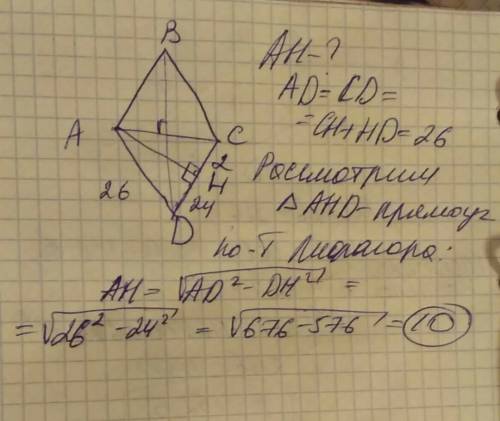 B
A
C
2
H
26
24
D
AH-?
AD = CD =
= CH+HD = 26
Рассмотрим
△ AHD - прямоуг
по-Т Пифагора:
AH = √AD² - DH² =
= √26² - 24² = √676 - 576 = 10